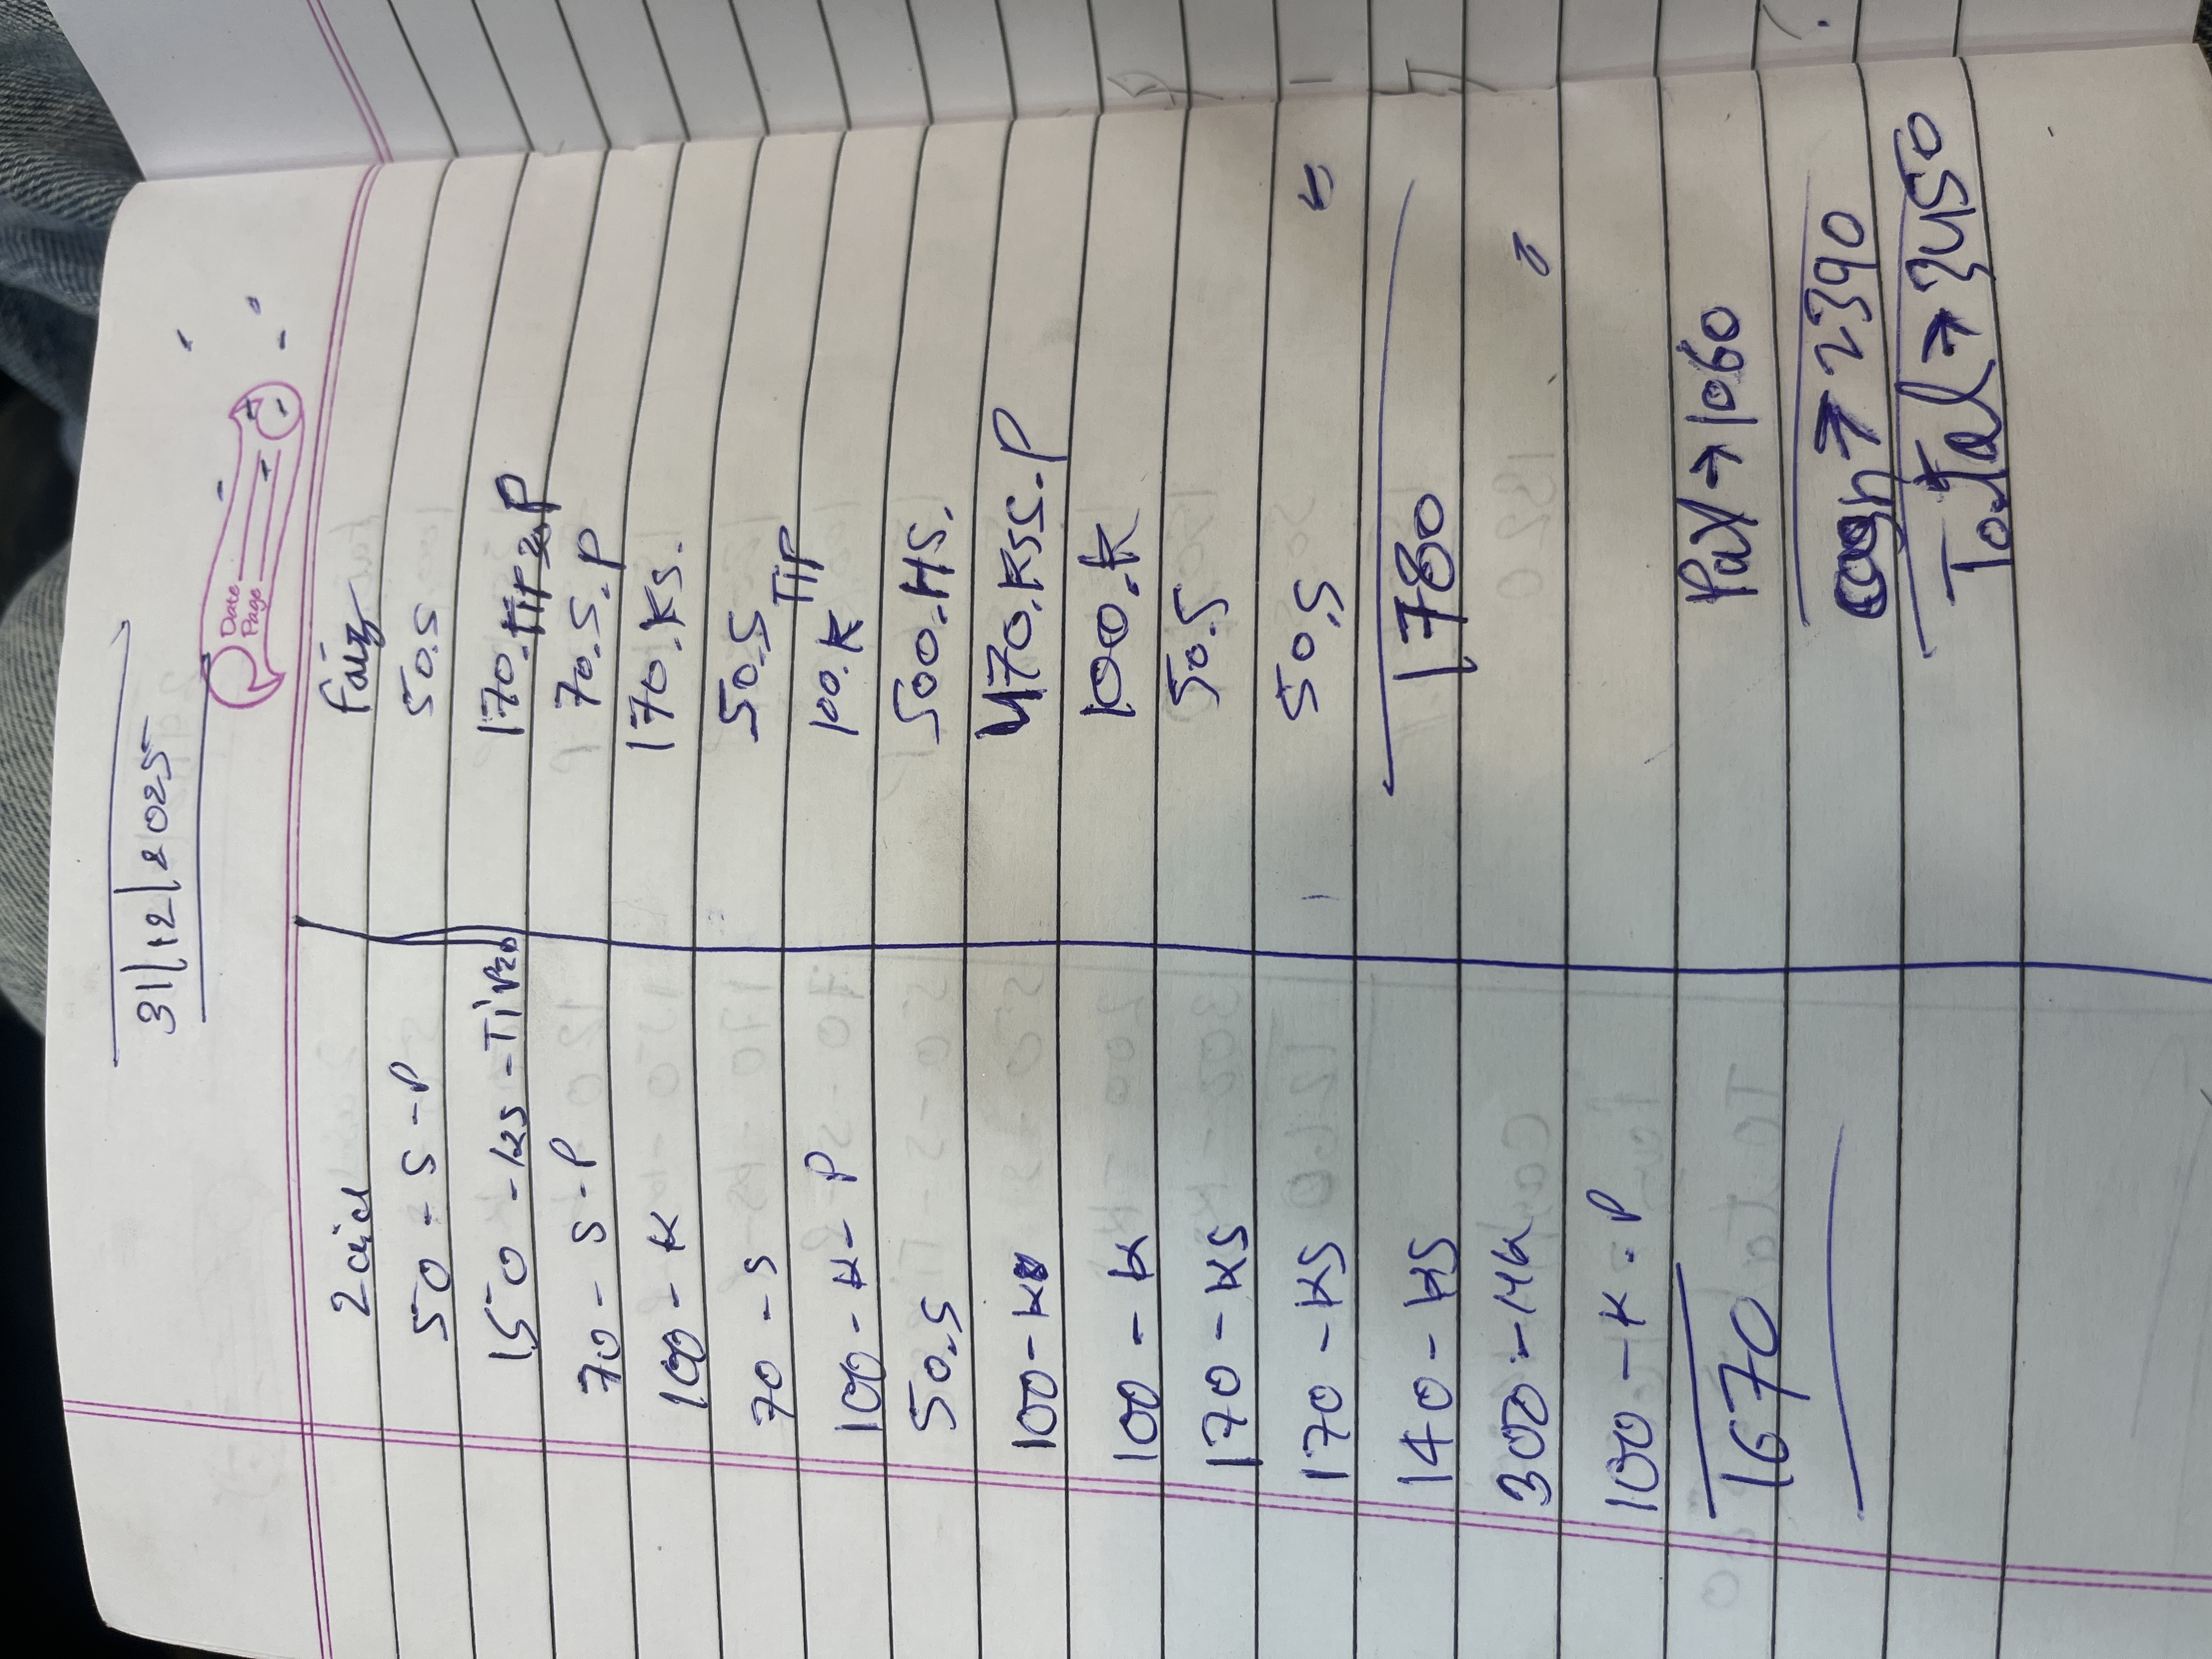 31/12/2025
Date
Page
Zaid
50 - S - P
150 - KS - Tip 20
70 - S - P
100 - K
70 - S
100 - K - P
50.S
100 - K
100 - K
170 - KS
170 - KS
140 - KS
300 - HK
100 - K - P
1670
Faiz
50.S
170. P
70.S.P
170.KS.
50.S
Tip
100.K
500.HS.
470.KSS.P
100.K
50.S
50.S
1780
Pay → 1060
cash → 2390
Total → 3450